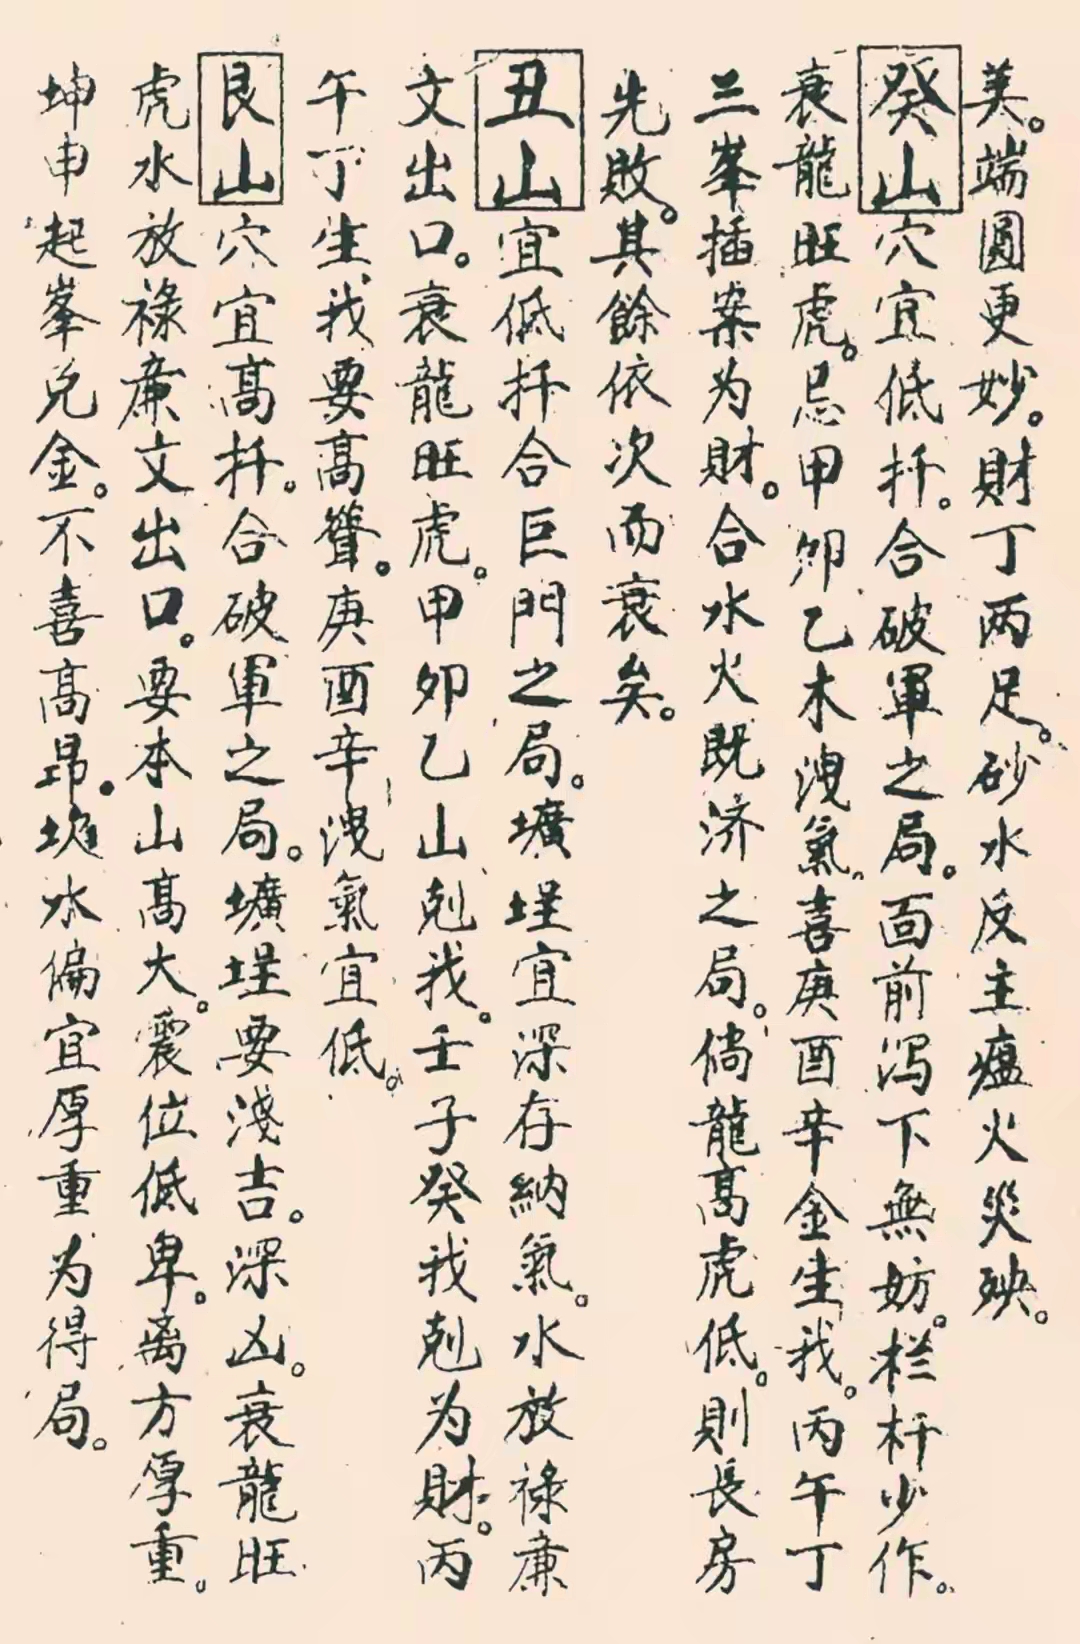 美。端圓更妙。財丁两足。砂水反主瘟火災殃。
癸山穴宜低扦。合破軍之局。面前泻下無妨。栏杆少作。
衰龍旺虎。忌甲卯乙木洩氣。喜庚酉辛金生我。丙午丁
三峯插案为財。合水火既济之局。倘龍高虎低。則長房
先敗。其餘依次而衰矣。
丑山宜低扦合巨門之局。壙埋宜深存納氣。水放祿廉
文出口。衰龍旺虎。甲卯乙山剋我。壬子癸我剋为財。丙
午丁生我要高聳。庚酉辛洩氣宜低。
艮山穴宜高扦。合破軍之局。壙埋要淺吉。深凶。衰龍旺
虎水放祿廉文出口。要本山高大。震位低卑。离方厚重。
坤申起峯兑金。不喜高昂。坎水偏宜厚重为得局。